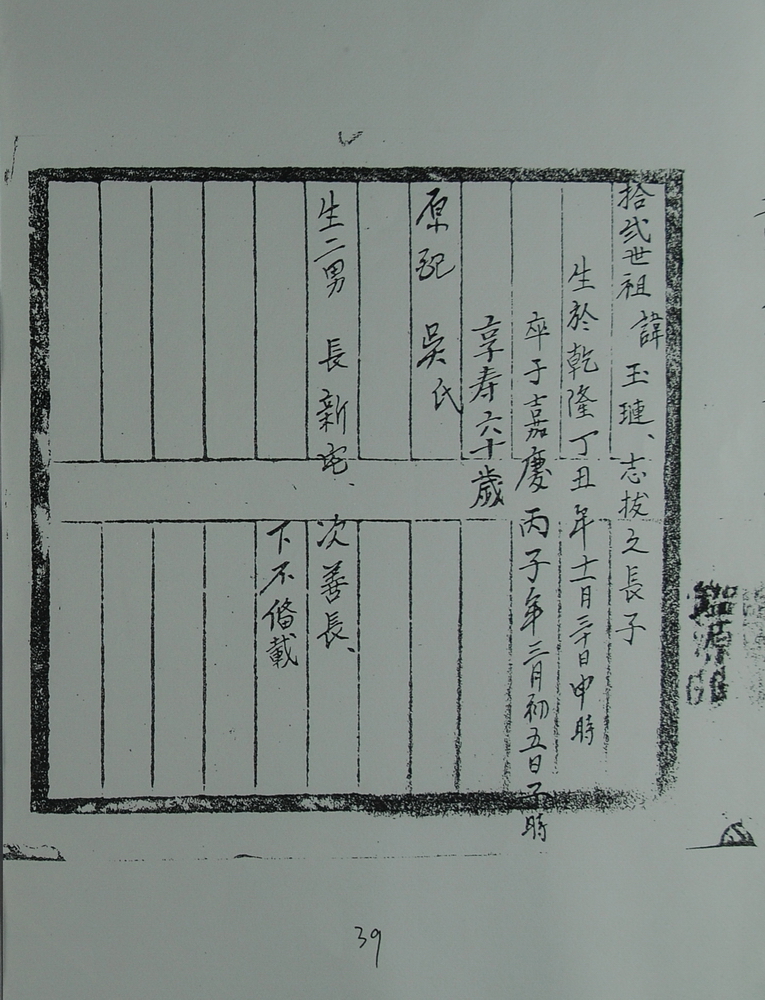 拾弍世祖 諱 玉璉、志拔之長子
生於乾隆丁丑年十一月三十日申時
卒于嘉慶丙子年三月初五日子時
享寿六十歲
原配 吳氏
生二男 長新宅、次善長、
下不俻載
39